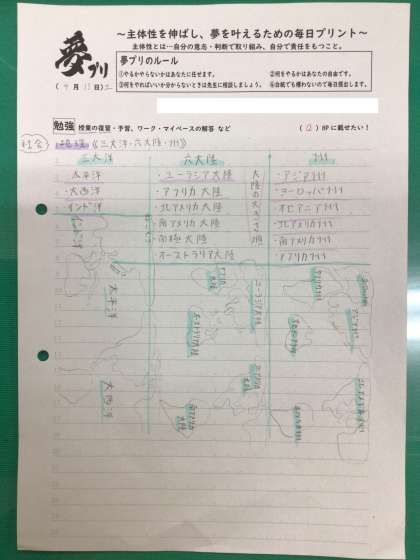 ～主体性を伸ばし、夢を叶えるための毎日プリント～
主体性とは…自分の意志・判断で取り組み、自分で責任をもつこと。
夢プリ
夢プリのルール
①やるかやらないかはあなたに任せます。 ②何をやるかはあなたの自由です。
③何をやればいいか分からないときは先生に相談しましょう。 ④白紙でも構わないので毎日提出します。
勉強 授業の復習・予習、ワーク・マイペースの解答 など
HPに載せたい!
社会 地理《三大洋・六大陸・州》
三大洋 六大陸 州
太平洋 ・ユーラシア大陸 ・アジア州
大西洋 ・アフリカ大陸 ・ヨーロッパ州
インド洋 ・北アメリカ大陸 ・オセアニア州
・南アメリカ大陸 ・北アメリカ州
・南極大陸 ・南アメリカ州
・オーストラリア大陸 ・アフリカ州
大陸の大きさ順
インド洋
太平洋
大西洋
ユーラシア大陸